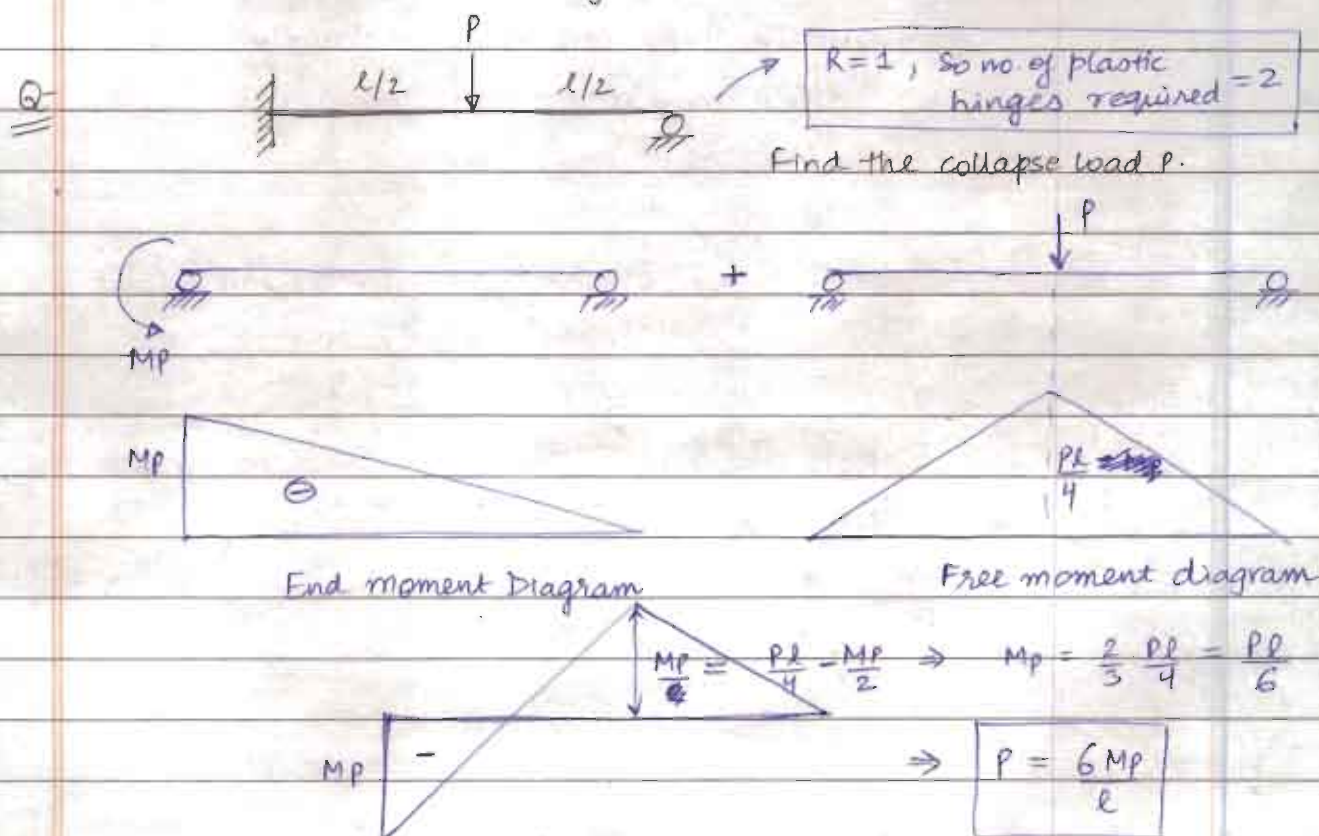 P
l/2 l/2
Q
R=1, So no. of plastic
hinges required = 2
Find the collapse load P.
P
+
MP
MP
⊖
Pl/4
End moment Diagram
Free moment diagram
MP = Pl/4 - MP/2 ⇒ MP = 2/3 Pl/4 = Pl/6
MP
-
⇒ P = 6MP/l